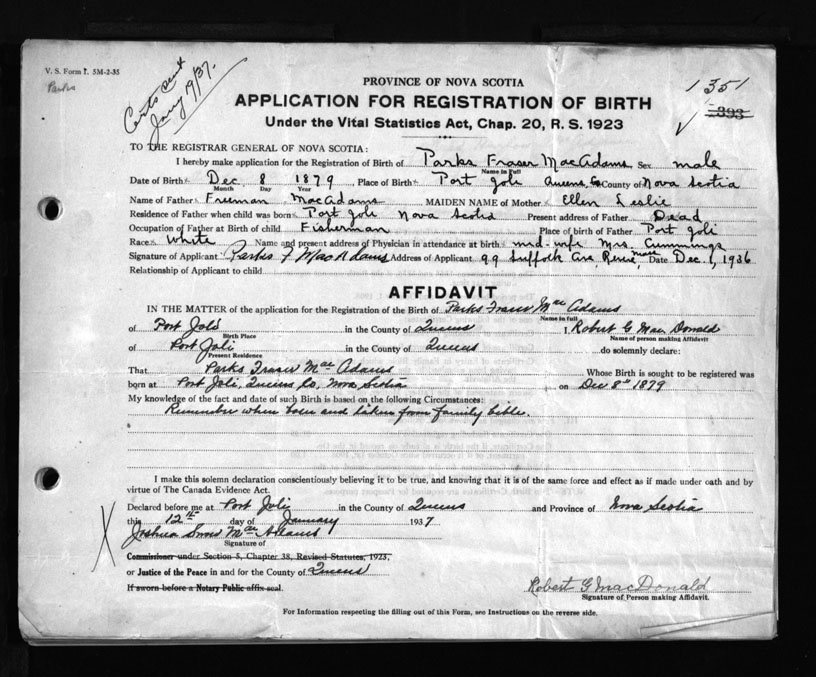 V. S. Form 1. 5M-2-35
Parks
Certs sent
Jany 19/37.
1351
393
PROVINCE OF NOVA SCOTIA
APPLICATION FOR REGISTRATION OF BIRTH
Under the Vital Statistics Act, Chap. 20, R. S. 1923
TO THE REGISTRAR GENERAL OF NOVA SCOTIA:
I hereby make application for the Registration of Birth of Parks Fraser MacAdams Sex male
Name in Full
Date of Birth Dec 8 1879, Place of Birth Port Joli Queens Co County of Nova Scotia
Month Day Year
Name of Father Freeman MacAdams MAIDEN NAME of Mother Ellen Leslie
Residence of Father when child was born Port Joli Nova Scotia Present address of Father Dead
Occupation of Father at Birth of child Fisherman Place of birth of Father Port Joli
Race White Name and present address of Physician in attendance at birth mid-wife Mrs. Cummings
Signature of Applicant Parks F MacAdams Address of Applicant 99 Suffolk Ave, Revere, Mass Date Dec. 1, 1936
Relationship of Applicant to child
AFFIDAVIT
IN THE MATTER of the application for the Registration of the Birth of Parks Fraser Mac Adams
Name in full
of Port Joli in the County of Queens I, Robert G Mac Donald
Birth Place Name of person making Affidavit
of Port Joli in the County of Queens do solemnly declare:
Present Residence
That Parks Fraser Mac Adams Whose Birth is sought to be registered was
born at Port Joli, Queens Co, Nova Scotia on Dec 8th 1879
My knowledge of the fact and date of such Birth is based on the following Circumstances:
Remember when born and taken from family bible.
I make this solemn declaration conscientiously believing it to be true, and knowing that it is of the same force and effect as if made under oath and by
virtue of The Canada Evidence Act.
Declared before me at Port Joli in the County of Queens and Province of Nova Scotia
this 12th day of January 1937
Joshua Snow Mac Adams
Signature of
Commissioner under Section 5, Chapter 38, Revised Statutes, 1923,
or Justice of the Peace in and for the County of Queens
If sworn before a Notary Public affix seal.
Robert G MacDonald
Signature of Person making Affidavit.
For Information respecting the filling out of this Form, see Instructions on the reverse side.